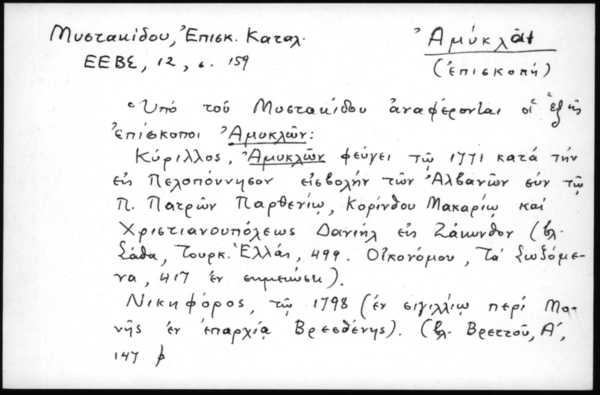 Μυστακίδου, Ἐπισκ. Καταλ.
Ἀμύκλαι
ΕΕΒΣ, 12, σ. 159
(ἐπισκοπή)
Ὑπό τοῦ Μυστακίδου ἀναφέρονται οἱ ἑξῆς
ἐπίσκοποι Ἀμυκλῶν:
Κύριλλος, Ἀμυκλῶν φεύγει τῷ 1771 κατά τήν
εἰς Πελοπόννησον εἰσβολήν τῶν Ἀλβανῶν σύν τῷ
Π. Πατρῶν Παρθενίῳ, Κορίνθου Μακαρίῳ καί
Χριστιανουπόλεως Δανιήλ εἰς Ζάκυνθον (βλ.
Σάθα, Τουρκ. Ἑλλάς, 499. Οἰκονόμου, Τά Σωζόμε-
να, 417 ἐν σημειώσει).
Νικηφόρος, τῷ 1798 (ἐν σιγιλλίῳ περί Μο-
νῆς ἐν ἐπαρχίᾳ Βρεσθένης). (βλ. Βρεττοῦ, Α΄,
147